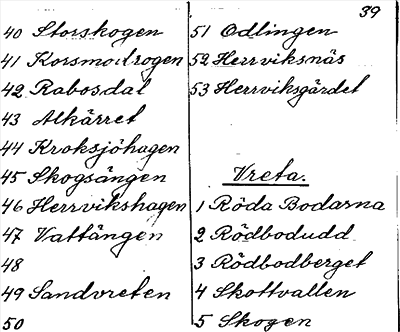 39
40 Storskogen
41 Korsmossrogen
42 Rabosdal
43 Alkärret
44 Kroksjöhagen
45 Skogsängen
46 Herrvikshagen
47 Vattängen
48
49 Sandvreten
50
51 Odlingen
52 Herrviksnäs
53 Herrviksgärdet
Vreta.
1 Röda Bodarna
2 Rödbodudd
3 Rödbodberget
4 Skottvallen
5 Skogen